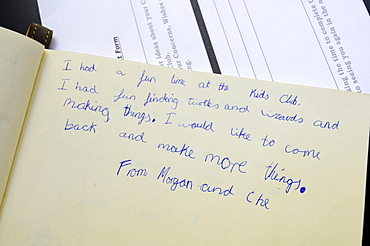 I had a fun time at the Kids Club.
I had fun finding turtles and wizards and
making things. I would like to come
back and make more things.
From Morgan and Che
t Form
r ideas about your C
Club.
ur Concerns, Wishes
time to complete t
seeing you again in the